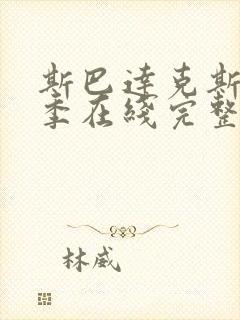 斯巴達克斯
季在綫完整
林威